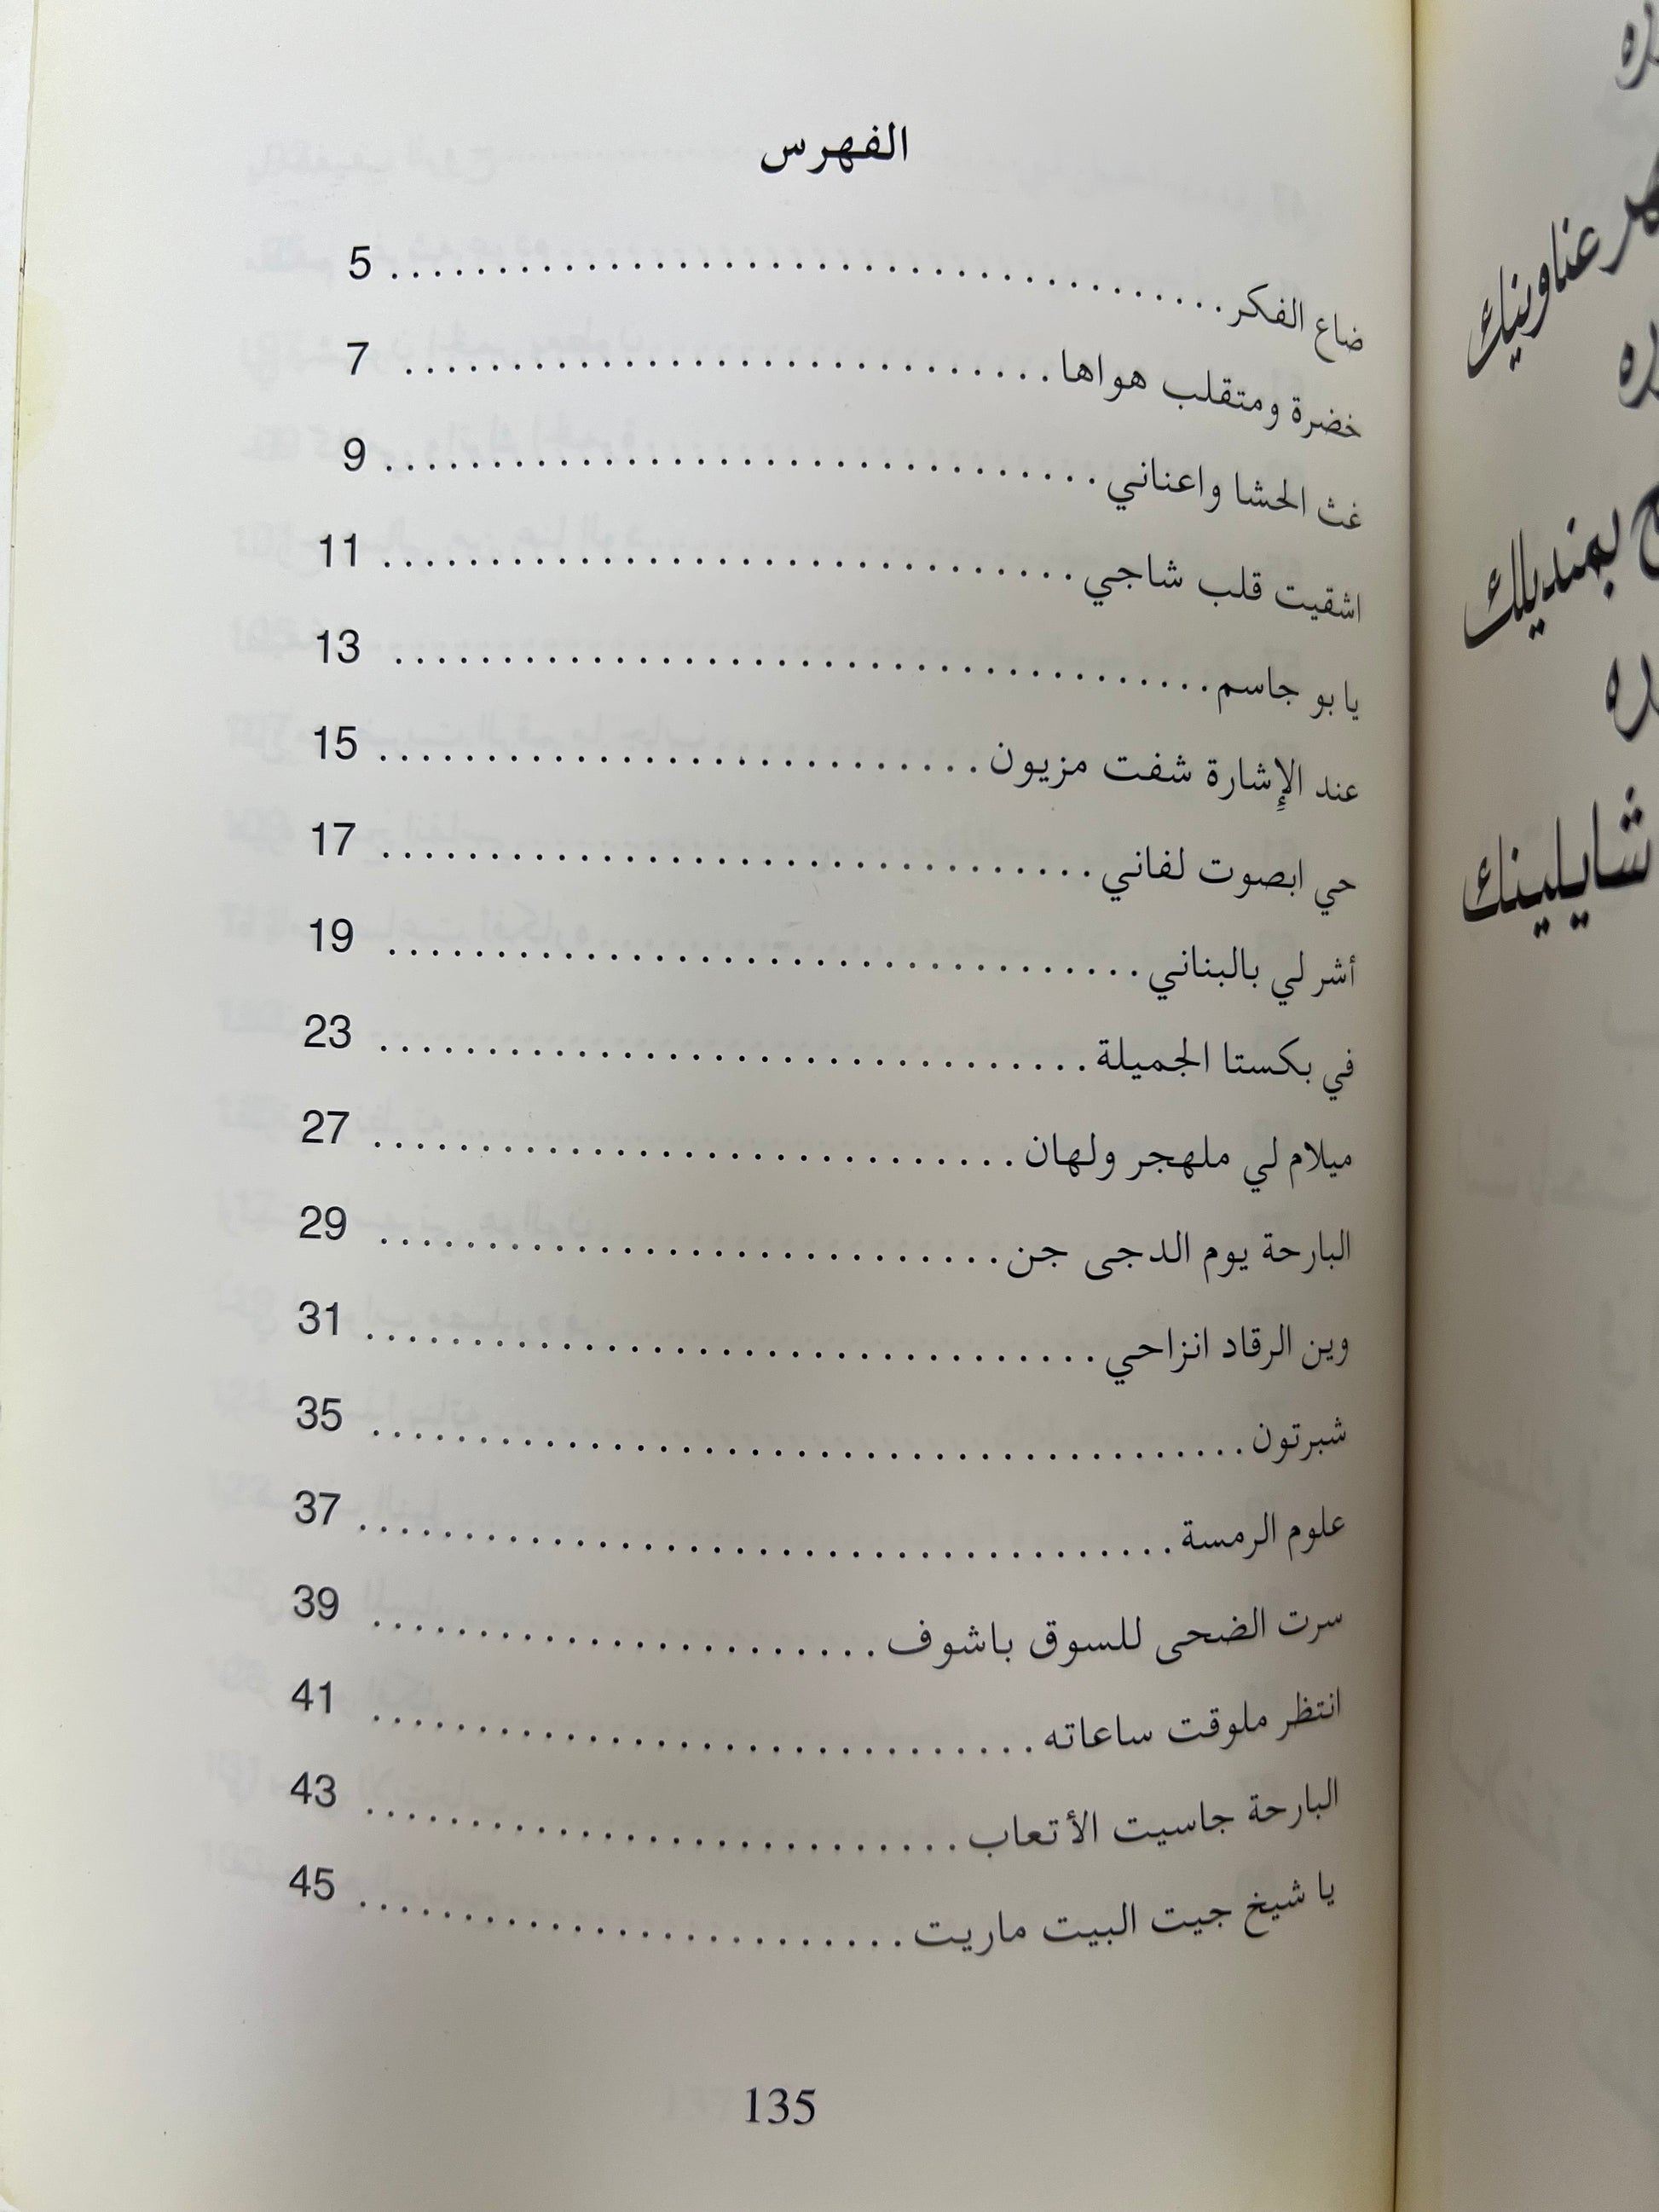 الفهرس
ضاع الفكر 5
خضرة ومتقلب هواها 7
غث الحشا واعناني 9
اشقيت قلب شاجي 11
يا بو جاسم 13
عند الإشارة شفت مزيون 15
حي ابصوت لفاني 17
أشر لي بالبناني 19
في بكستا الجميلة 23
ميلام لي ملهجر ولهان 27
البارحة يوم الدجى جن 29
وين الرقاد انزاحي 31
شبرتون 35
علوم الرمسة 37
سرت الضحى للسوق باشوف 39
انتظر ملوقت ساعاته 41
البارحة جاسيت الأتعاب 43
يا شيخ جيت البيت ماريت 45
135
عناوينك
بمنديلك
شايلينك